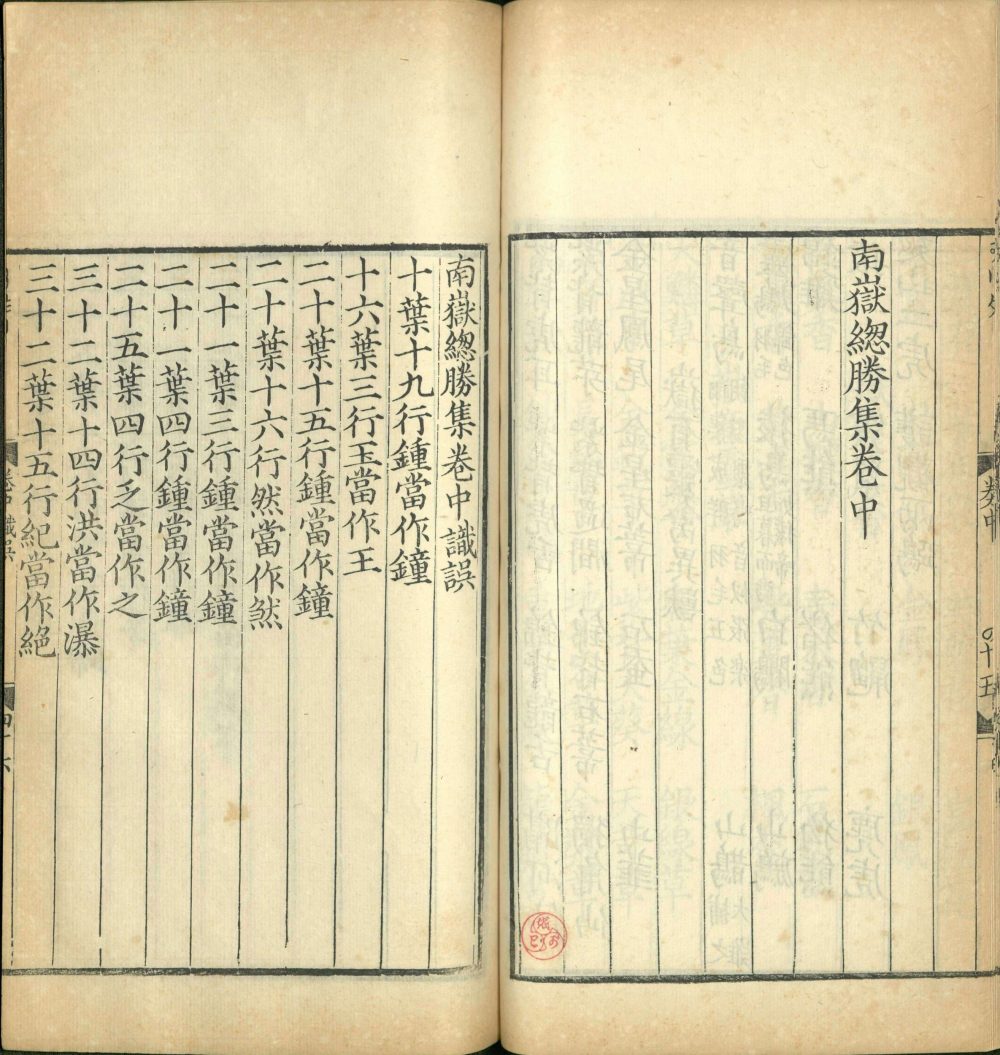 南嶽緫勝集卷中
南嶽緫勝集卷中識誤
十葉十九行鍾當作鐘
十六葉三行玉當作王
二十葉十五行鍾當作鐘
二十葉十六行然當作煞
二十一葉三行鍾當作鐘
二十一葉四行鍾當作鐘
二十五葉四行乏當作之
三十二葉十四行洪當作瀑
三十二葉十五行紀當作絕
卷中 識誤